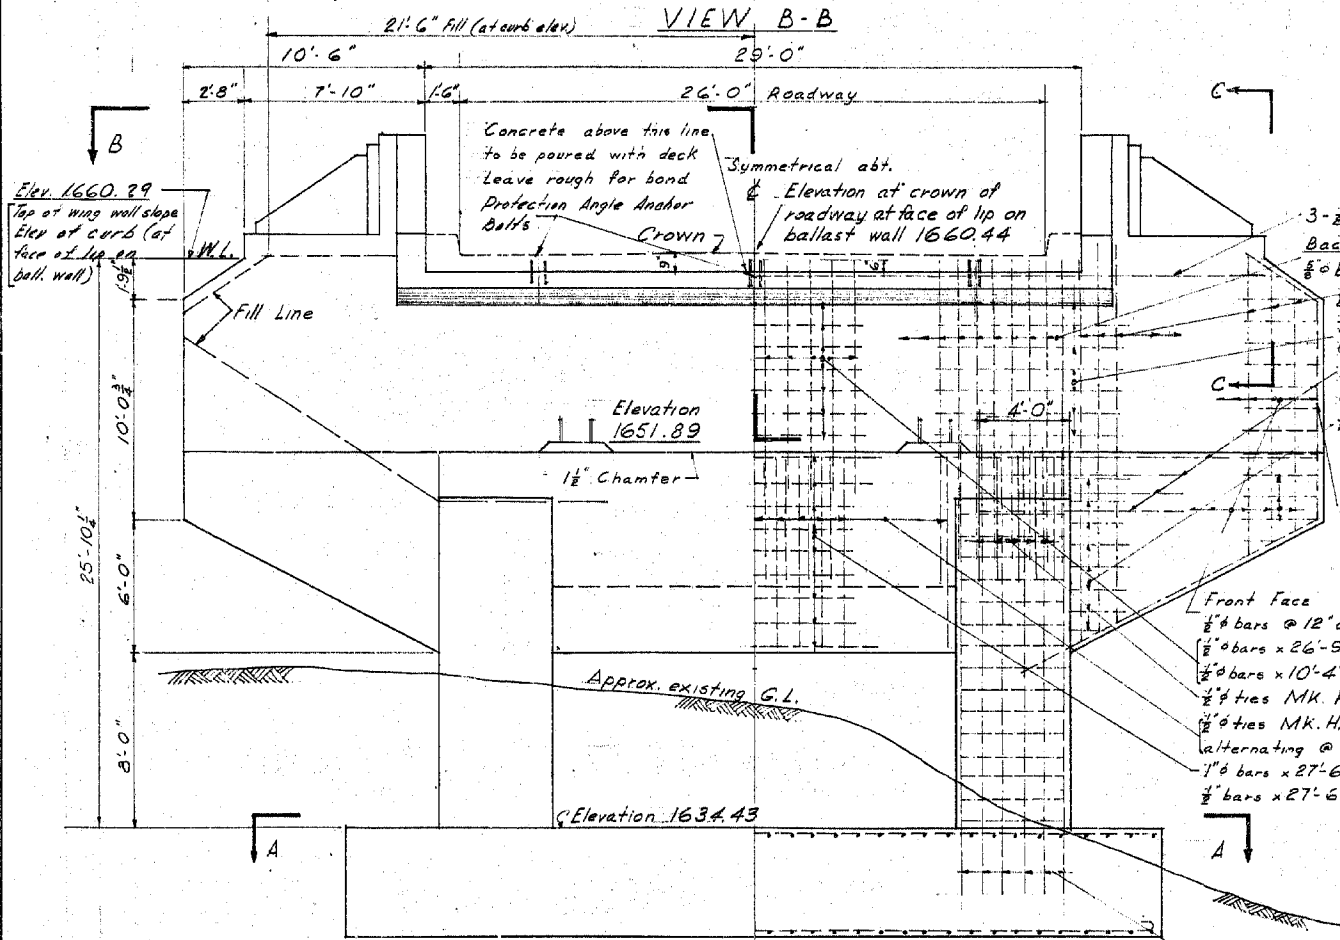 VIEW B-B
21'-6" Fill (at curb elev)
10'-6"
29'-0"
2'-8"
7'-10"
1'-6"
26'-0" Roadway
B
C
Concrete above this line
to be poured with deck
Leave rough for bond
Protection Angle Anchor
Bolts
Symmetrical abt.
℄
Elevation at crown of
roadway at face of lip on
ballast wall 1660.44
Crown
Elev. 1660.29
Top of wing wall slope
Elev of curb (at
face of lip on
ball. wall)
W.L.
1'-9½"
9"
6"
3-
Bac
⅝"ø b
Fill Line
10'-0¾"
C
Elevation
1651.89
4'-0"
1½" Chamfer
25'-10¼"
6'-0"
Front Face
½"ø bars @ 12"
½"ø bars x 26'-
½"ø bars x 10'-4
½"ø ties MK. H
½"ø ties MK. H.
alternating @
1"ø bars x 27'-6
½" bars x 27'-6
Approx. existing G.L.
8'-0"
Elevation 1634.43
A
A